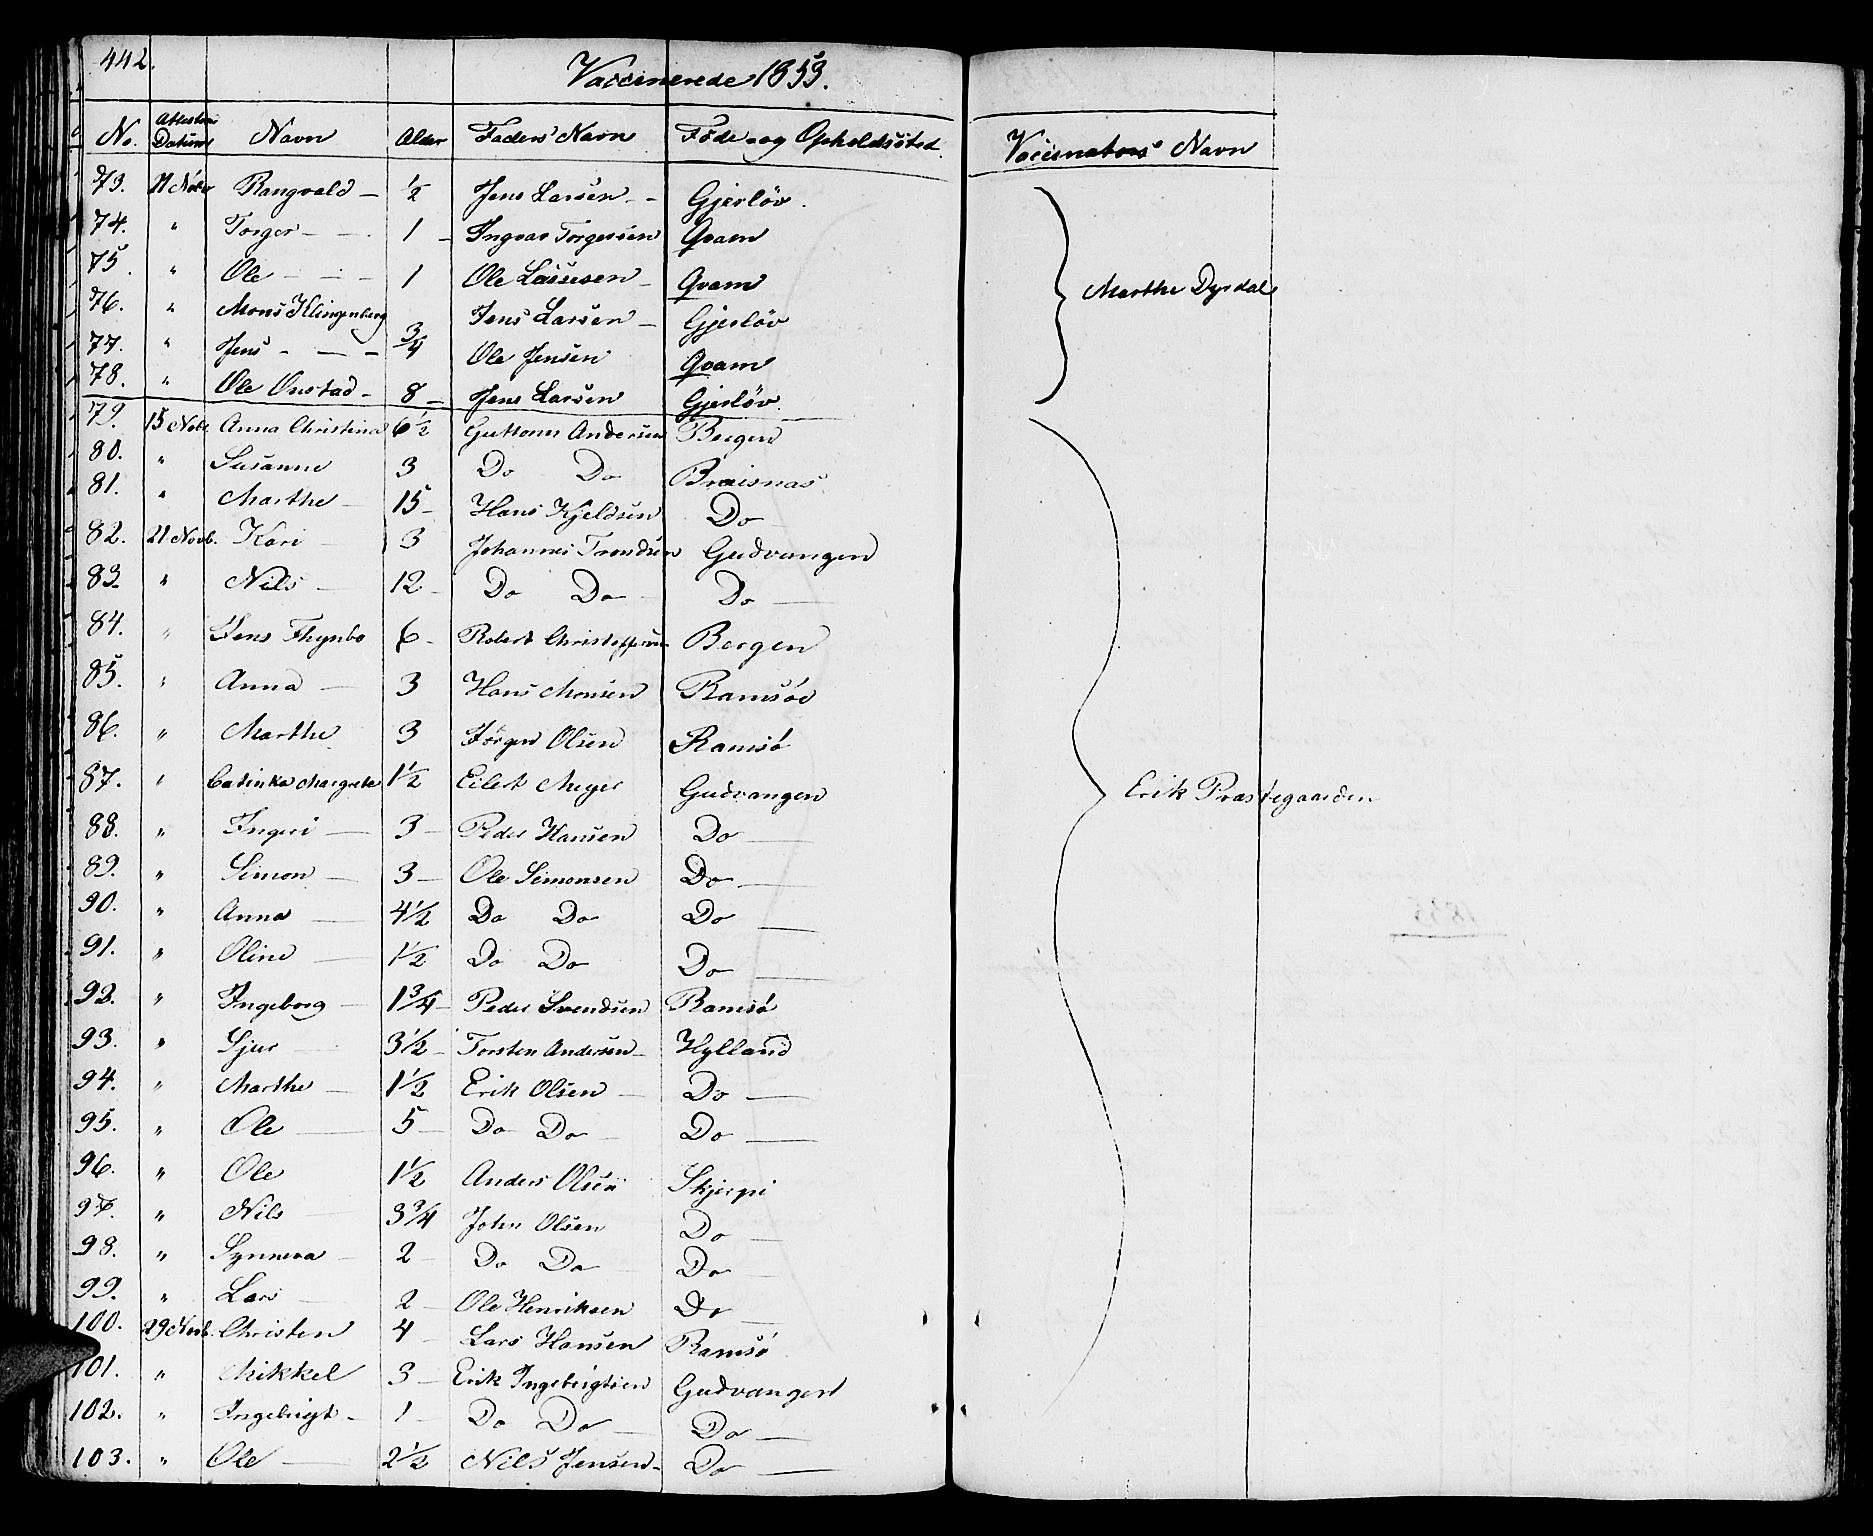 442.
Vaccinerede 1853.
No. Attestens Datum Navn Alder Faders Navn Føde- og Opholdssted Vaccinators Navn
73. 11 Novbr Rangvald — ½ Jens Larsen - Gjerløv.
74. " Torger — 1 - Ingvar Torgersen Qvam
75. " Ole — 1 Ole Lassesen - Qvam
Marthe Dyrdal
76. " Mons Klingenberg Jens Larsen - Gjerløv
77. " Jens — ¾ Ole Jensen Qvam
78. " Ole Onstad - 8 - Jens Larsen Gjerløv.
79. 15 Novb Anna Christina 6½ Guttorm Andersen Bergen
80. " Susanne 3 Do Do Braisnas
81. " Marthe 15 - Hans Kjeldsen Do
82. 21 Novb. Kari 3 Johannes Trondsen Gudvangen
83. " Nils — 12 - Do Do Do —
84. " Jens Thynbo 6 - Robert Christoffersen Bergen
85. " Anna — 3 Hans Monsen Ramsöe
86. " Marthe 3 Jörgen Olsen Ramsö
87. " Catinka Margrete 1½ Eilert Meyer Gudvangen
Erik Præstegaarden
88. " Ingeri — 3 - Peder Hansen Do —
89. " Simon — 3 - Ole Simonsen Do —
90. " Anna — 4½ Do Do Do —
91. " Oline — 1½ Do Do Do —
92. " Ingeborg — 1¾ - Peder Svendsen Ramsö
93. " Sjur — 3½ - Torsten Andersen - Hylland
94. " Marthe — 1½ Erik Olsen — Do —
95. " Ole — 5 - Do Do Do —
96. " Ole 1½ Anders Olsen Skjerpi
97. " Nils 3¾ John Olsen Do —
98. " Synneva 2 - Do Do Do —
99. " Lars 2 - Ole Henriksen Do —
100. 29 Novb. Christen 4 - Lars Hansen Ramsö
101. " Mikkel 3 - Erik Ingebrigtsen Gudvangen
102. " Ingebrigt - 1 - Do Do — Do —
103. " Ole — 2½ Nils Jensen - Do —